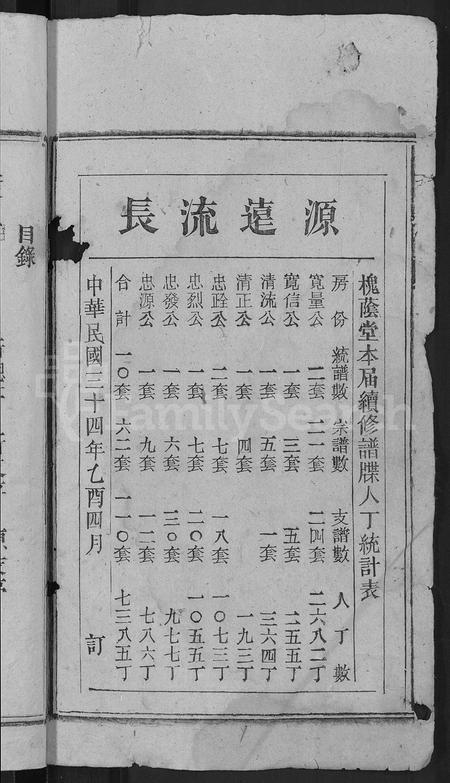 源遠流長
槐蔭堂本届續修譜牒人丁統計表
房份 統譜數 宗譜數 支譜數 人丁數
寬量公 二套 二一套 二四套 二六八二丁
寬信公 一套 三套 五套 二五五丁
清流公 一套 五套 一套 三六四丁
清正公 一套 四套 一九三丁
忠公 二套 七套 一八套 一〇七三丁
忠烈公 一套 七套 二〇套 一〇五五丁
忠發公 一套 六套 三〇套 九七七丁
忠源公 一套 九套 一二套 七八六丁
合計 一〇套 六二套 一一〇套 七三八五丁
中華民國三十四年乙酉四月 訂
目錄
FamilySearch